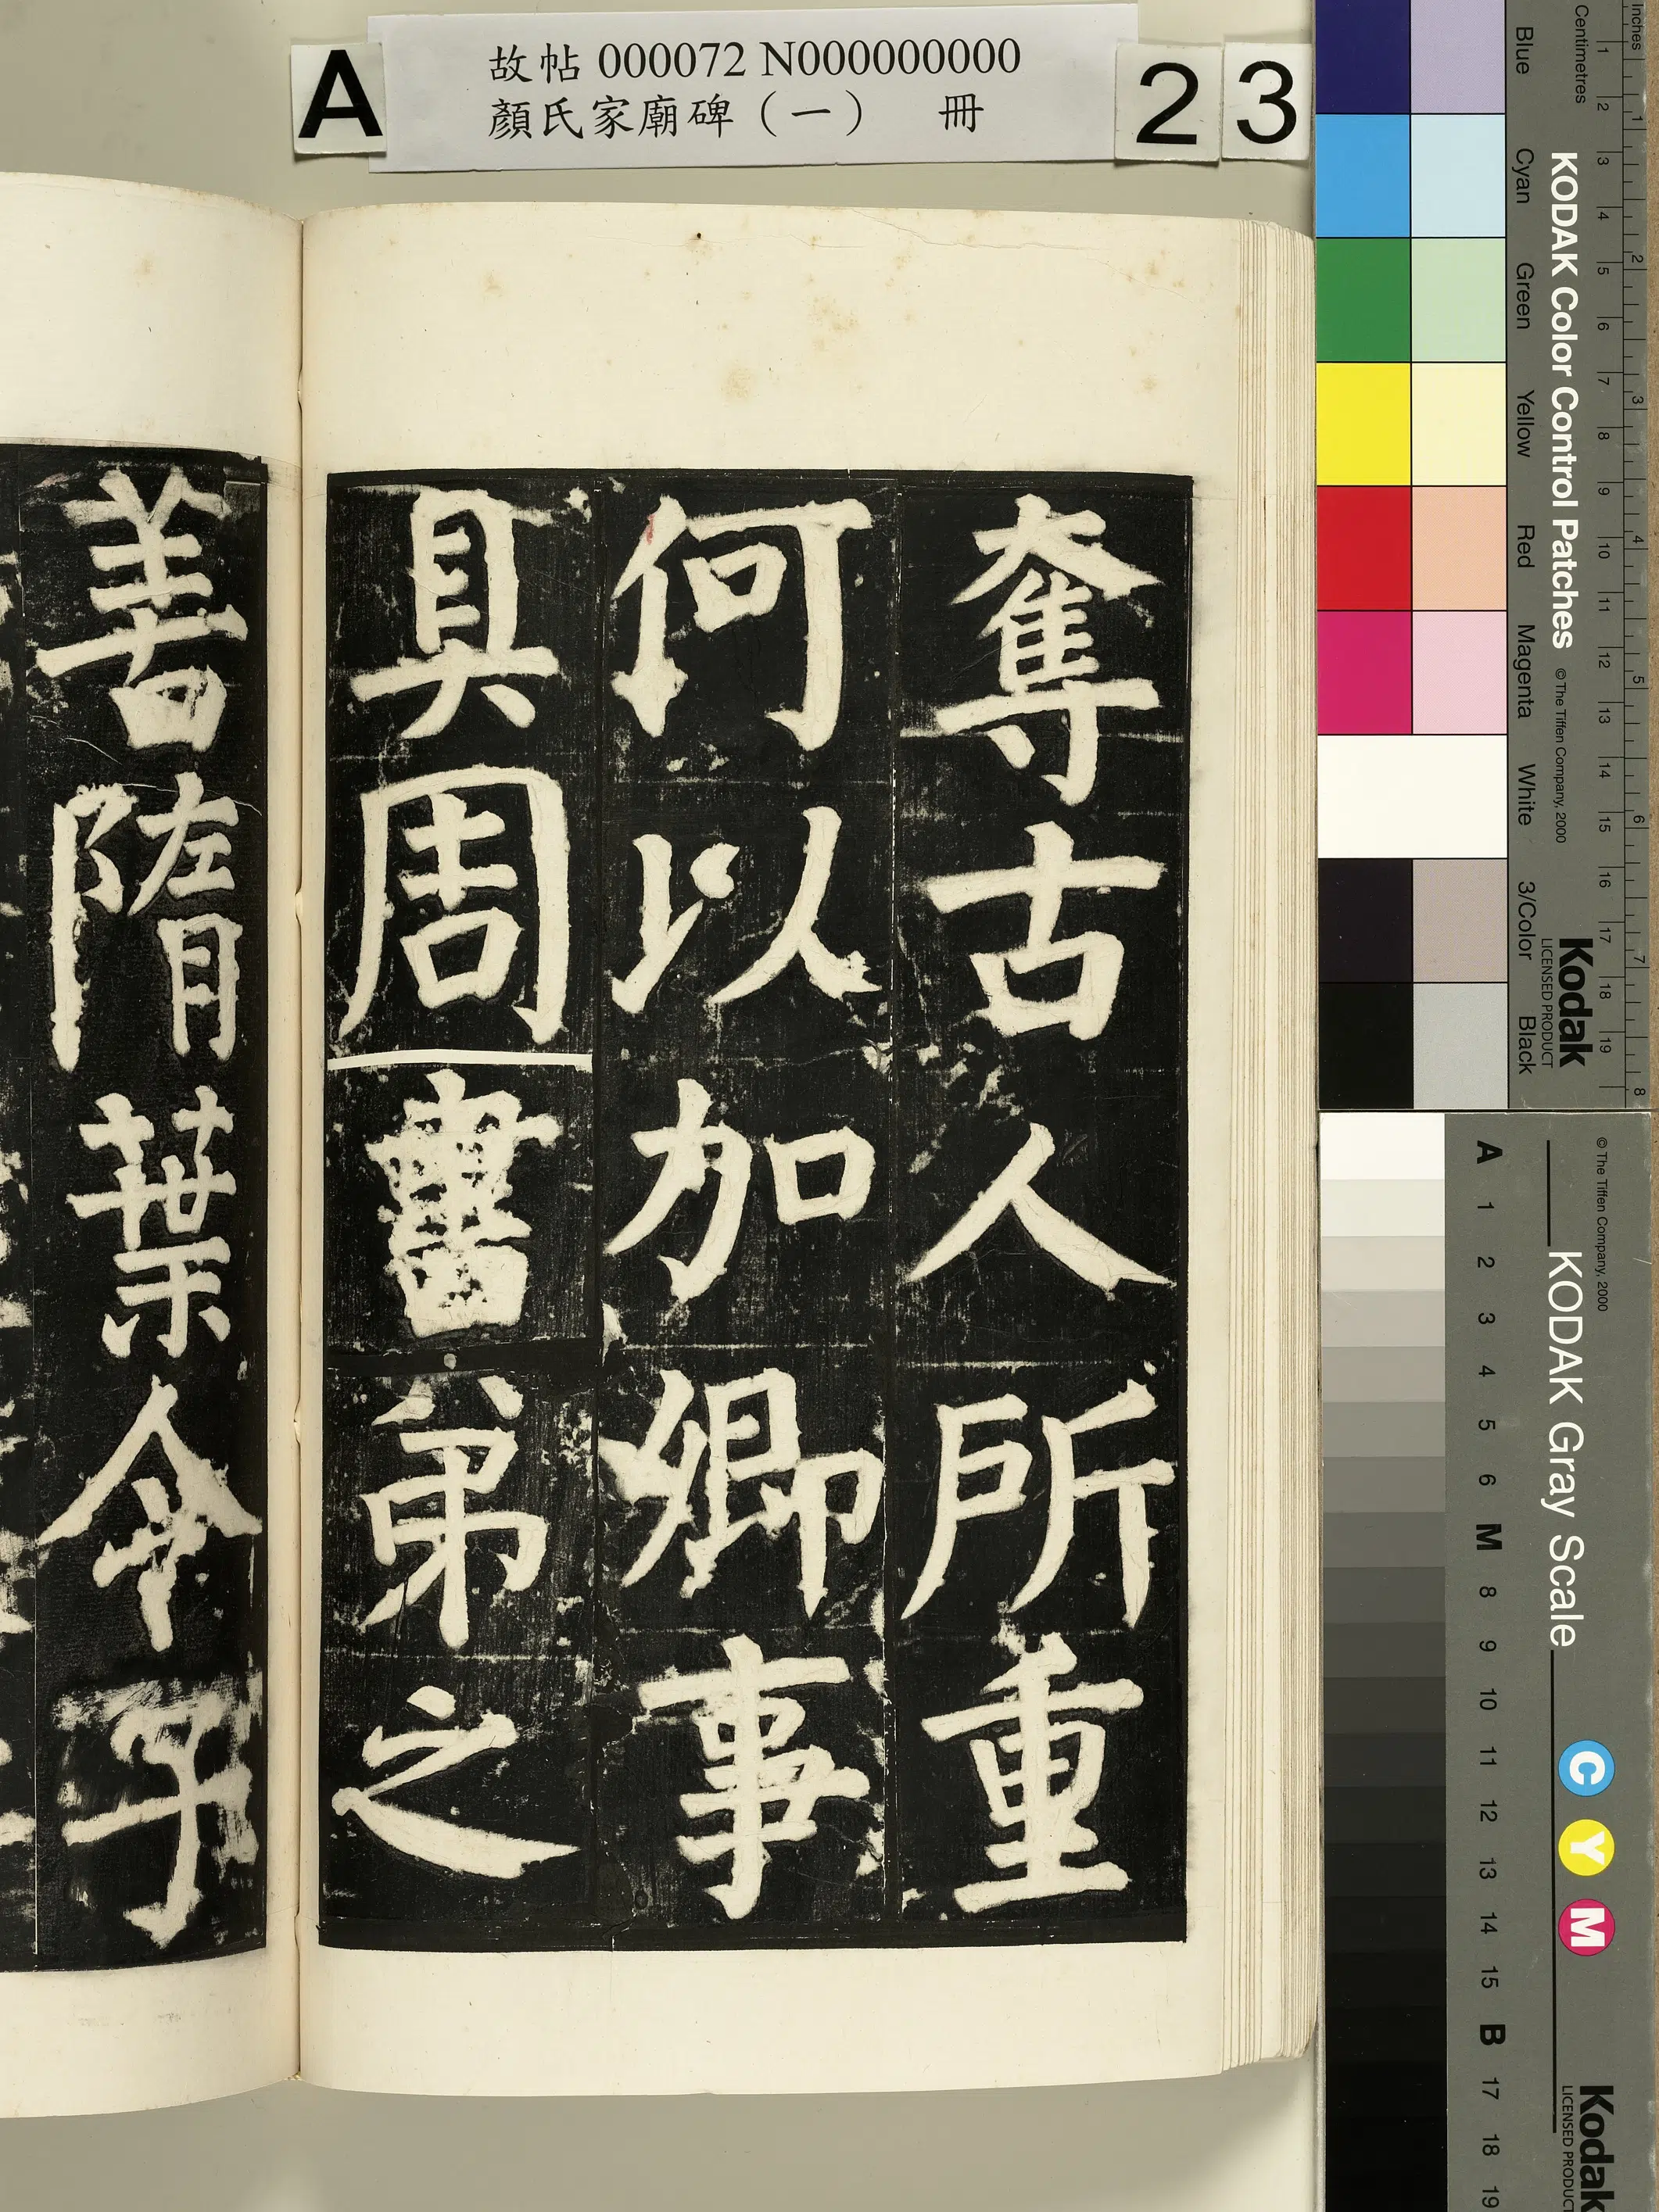 A
故帖 000072 N000000000
顏氏家廟碑（一） 冊
2 3
奪古人所重
何以加卿事
具周書弟之
善隋葉令子
Inches
Centimetres
1 2 3 4 5 6 7 8
1 2 3 4 5 6 7 8 9 10 11 12 13 14 15 16 17 18 19
KODAK Color Control Patches © The Tiffen Company, 2000 Kodak
LICENSED PRODUCT
Blue Cyan Green Yellow Red Magenta White 3/Color Black
© The Tiffen Company, 2000
KODAK Gray Scale
C Y M
Kodak
LICENSED PRODUCT
A 1 2 3 4 5 6 M 8 9 10 11 12 13 14 15 B 17 18 19